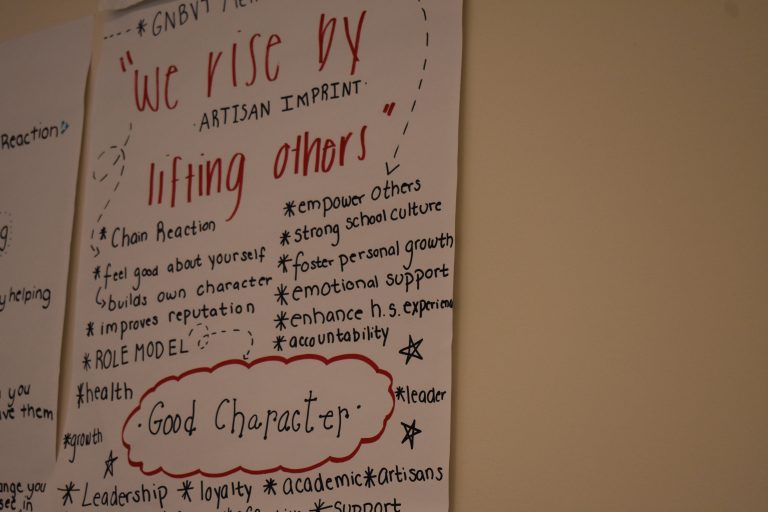 Reaction
helping
you
them
you
in
*GNBVT
"we rise by
ARTISAN IMPRINT
lifting others"
*Chain Reaction
*feel good about yourself
↳builds own character
*improves reputation
*ROLE MODEL
*empower others
*strong school culture
*foster personal growth
*emotional support
*enhance h.s.
*accountability
*health
*growth
·Good Character·
*leader
*Leadership *loyalty *academic *artisans
*support